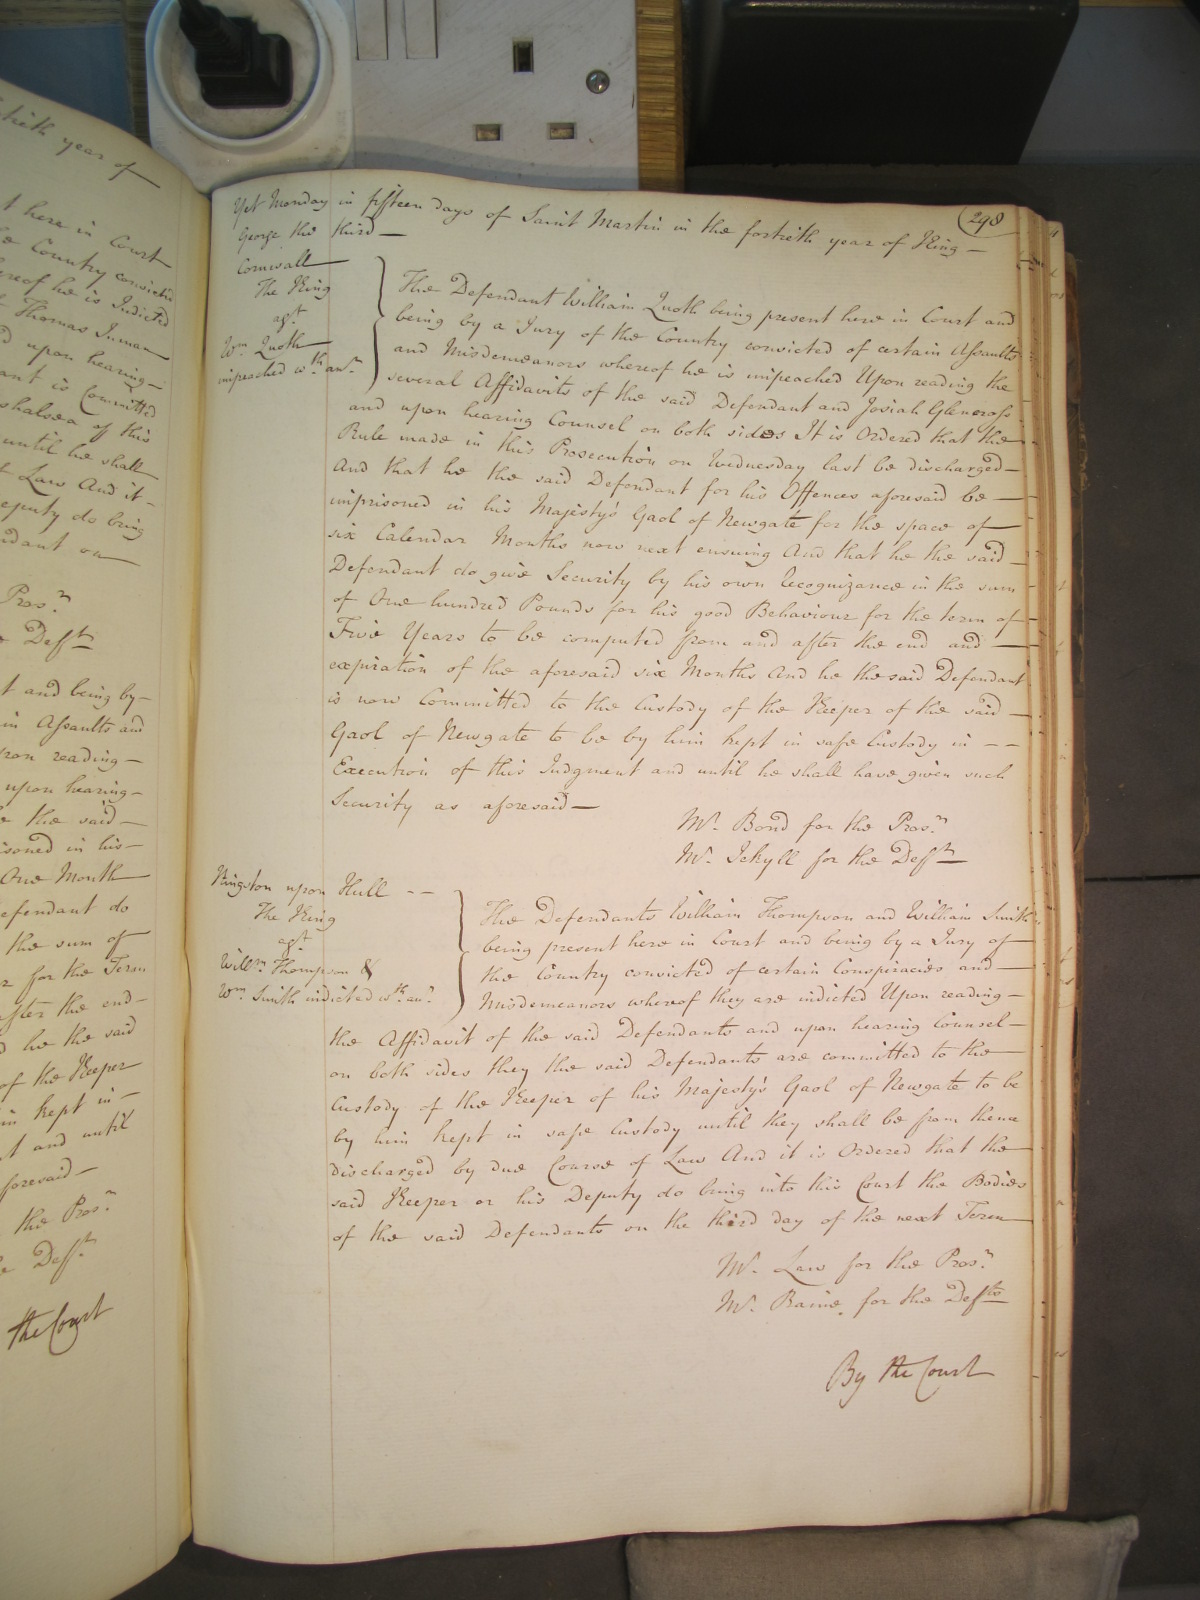 tieth year of
t here in Court
e Country convicted
ereof he is Indicted
t Thomas Inman
d upon hearing
ant is Committed
shalsea of this
until he shall
t Law And it
eputy do bring
ndant on
Pros:n
e Deft
t and being by
in Assaults and
pon reading
upon hearing
e the said
isoned in his
One Month
efendant do
the sum of
r for the Term
after the end
d he the said
of the Keeper
in kept in
t and until
foresaid
the Pros:n
e Deft
the Court
298
Yet Monday in fifteen days of Saint Martin in the fortieth year of King
George the third
Cornwall
The King
agt
Wm Quoth
impeached wth anr
The Defendant William Quoth being present here in Court and
being by a Jury of the Country convicted of certain Assaults
and Misdemeanors whereof he is impeached Upon reading the
several Affidavits of the said Defendant and Josiah Glencross
and upon hearing Counsel on both sides It is Ordered that the
Rule made in this Prosecution on Wednesday last be discharged
And that he the said Defendant for his Offences aforesaid be
imprisoned in his Majesty's Gaol of Newgate for the space of
six Calendar Months now next ensuing And that he the said
Defendant do give Security by his own Recognizance in the sum
of One hundred Pounds for his good Behaviour for the term of
Five Years to be computed from and after the end and
expiration of the aforesaid six Months And he the said Defendant
is now Committed to the Custody of the Keeper of the said
Gaol of Newgate to be by him kept in safe Custody in
Execution of this Judgment and until he shall have given such
Security as aforesaid
Mr. Bond for the Pros:n
Mr. Jekyll for the Deft
Kingston upon Hull
The King
agt
Willm Thompson &
Wm Smith indicted wth anr
The Defendants William Thompson and William Smith
being present here in Court and being by a Jury of
the Country convicted of certain Conspiracies and
Misdemeanors whereof they are indicted Upon reading
the Affidavit of the said Defendants and upon hearing Counsel
on both sides they the said Defendants are committed to the
Custody of the Keeper of his Majesty's Gaol of Newgate to be
by him kept in safe Custody until they shall be from thence
discharged by due Course of Law And it is Ordered that the
said Keeper or his Deputy do bring into this Court the Bodies
of the said Defendants on the third day of the next Term
Mr. Law for the Pros:n
Mr. Raine for the Defts
By the Court